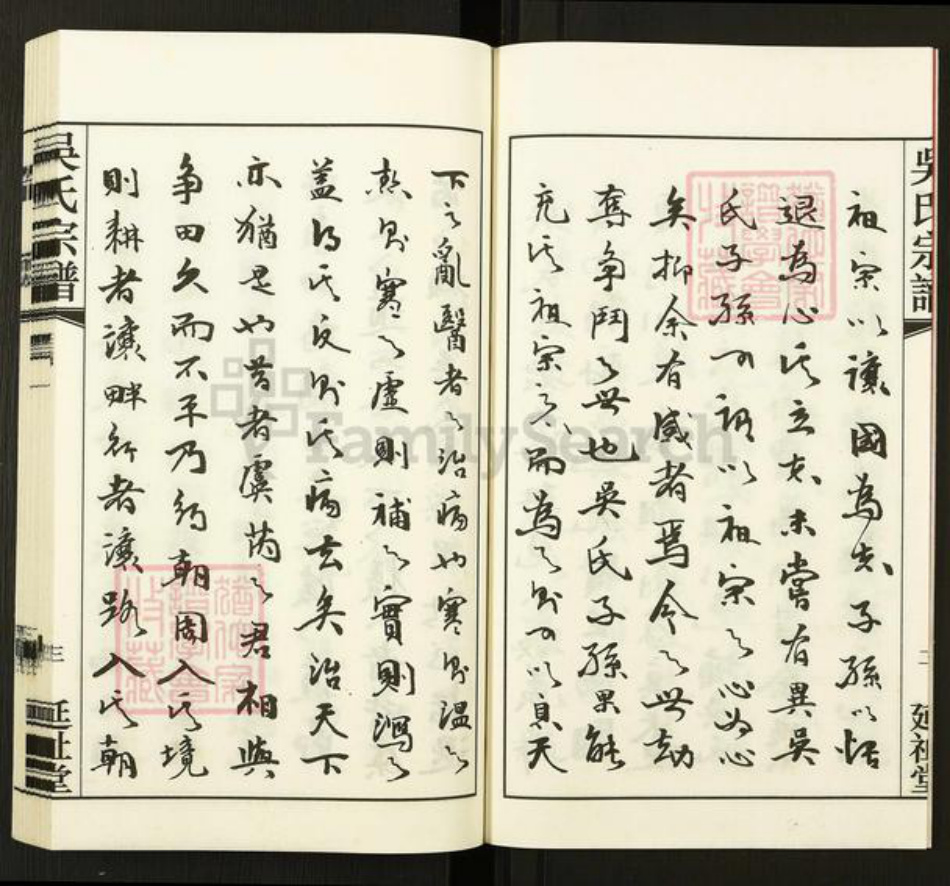 吳氏宗譜
二
延祉堂
祖宗以讓國為志子孫以恬
退為心其立志未嘗有異吳
氏子孫可謂以祖宗之心為心
矣抑余有感者焉今之世劫
奪爭鬥之世也吳氏子孫果能
充其祖宗之志而為之則可以息天
下之亂醫者之治病也寒則溫之
熱則寒之虛則補之實則瀉之
蓋得其反則其病去矣治天下
亦猶是也昔者虞芮之君相與
爭田久而不平乃約朝周入其境
則耕者讓畔行者讓路入其朝
吳氏宗譜
一
三
延祉堂
FamilySearch